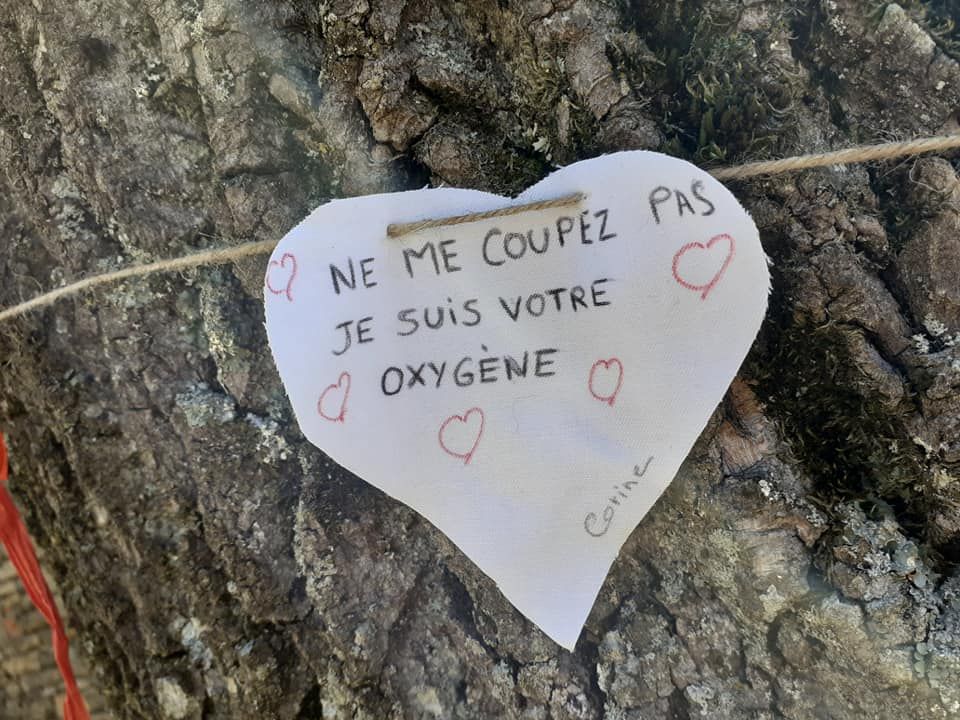 NE ME COUPEZ PAS
JE SUIS VOTRE
OXYGÈNE
Corine